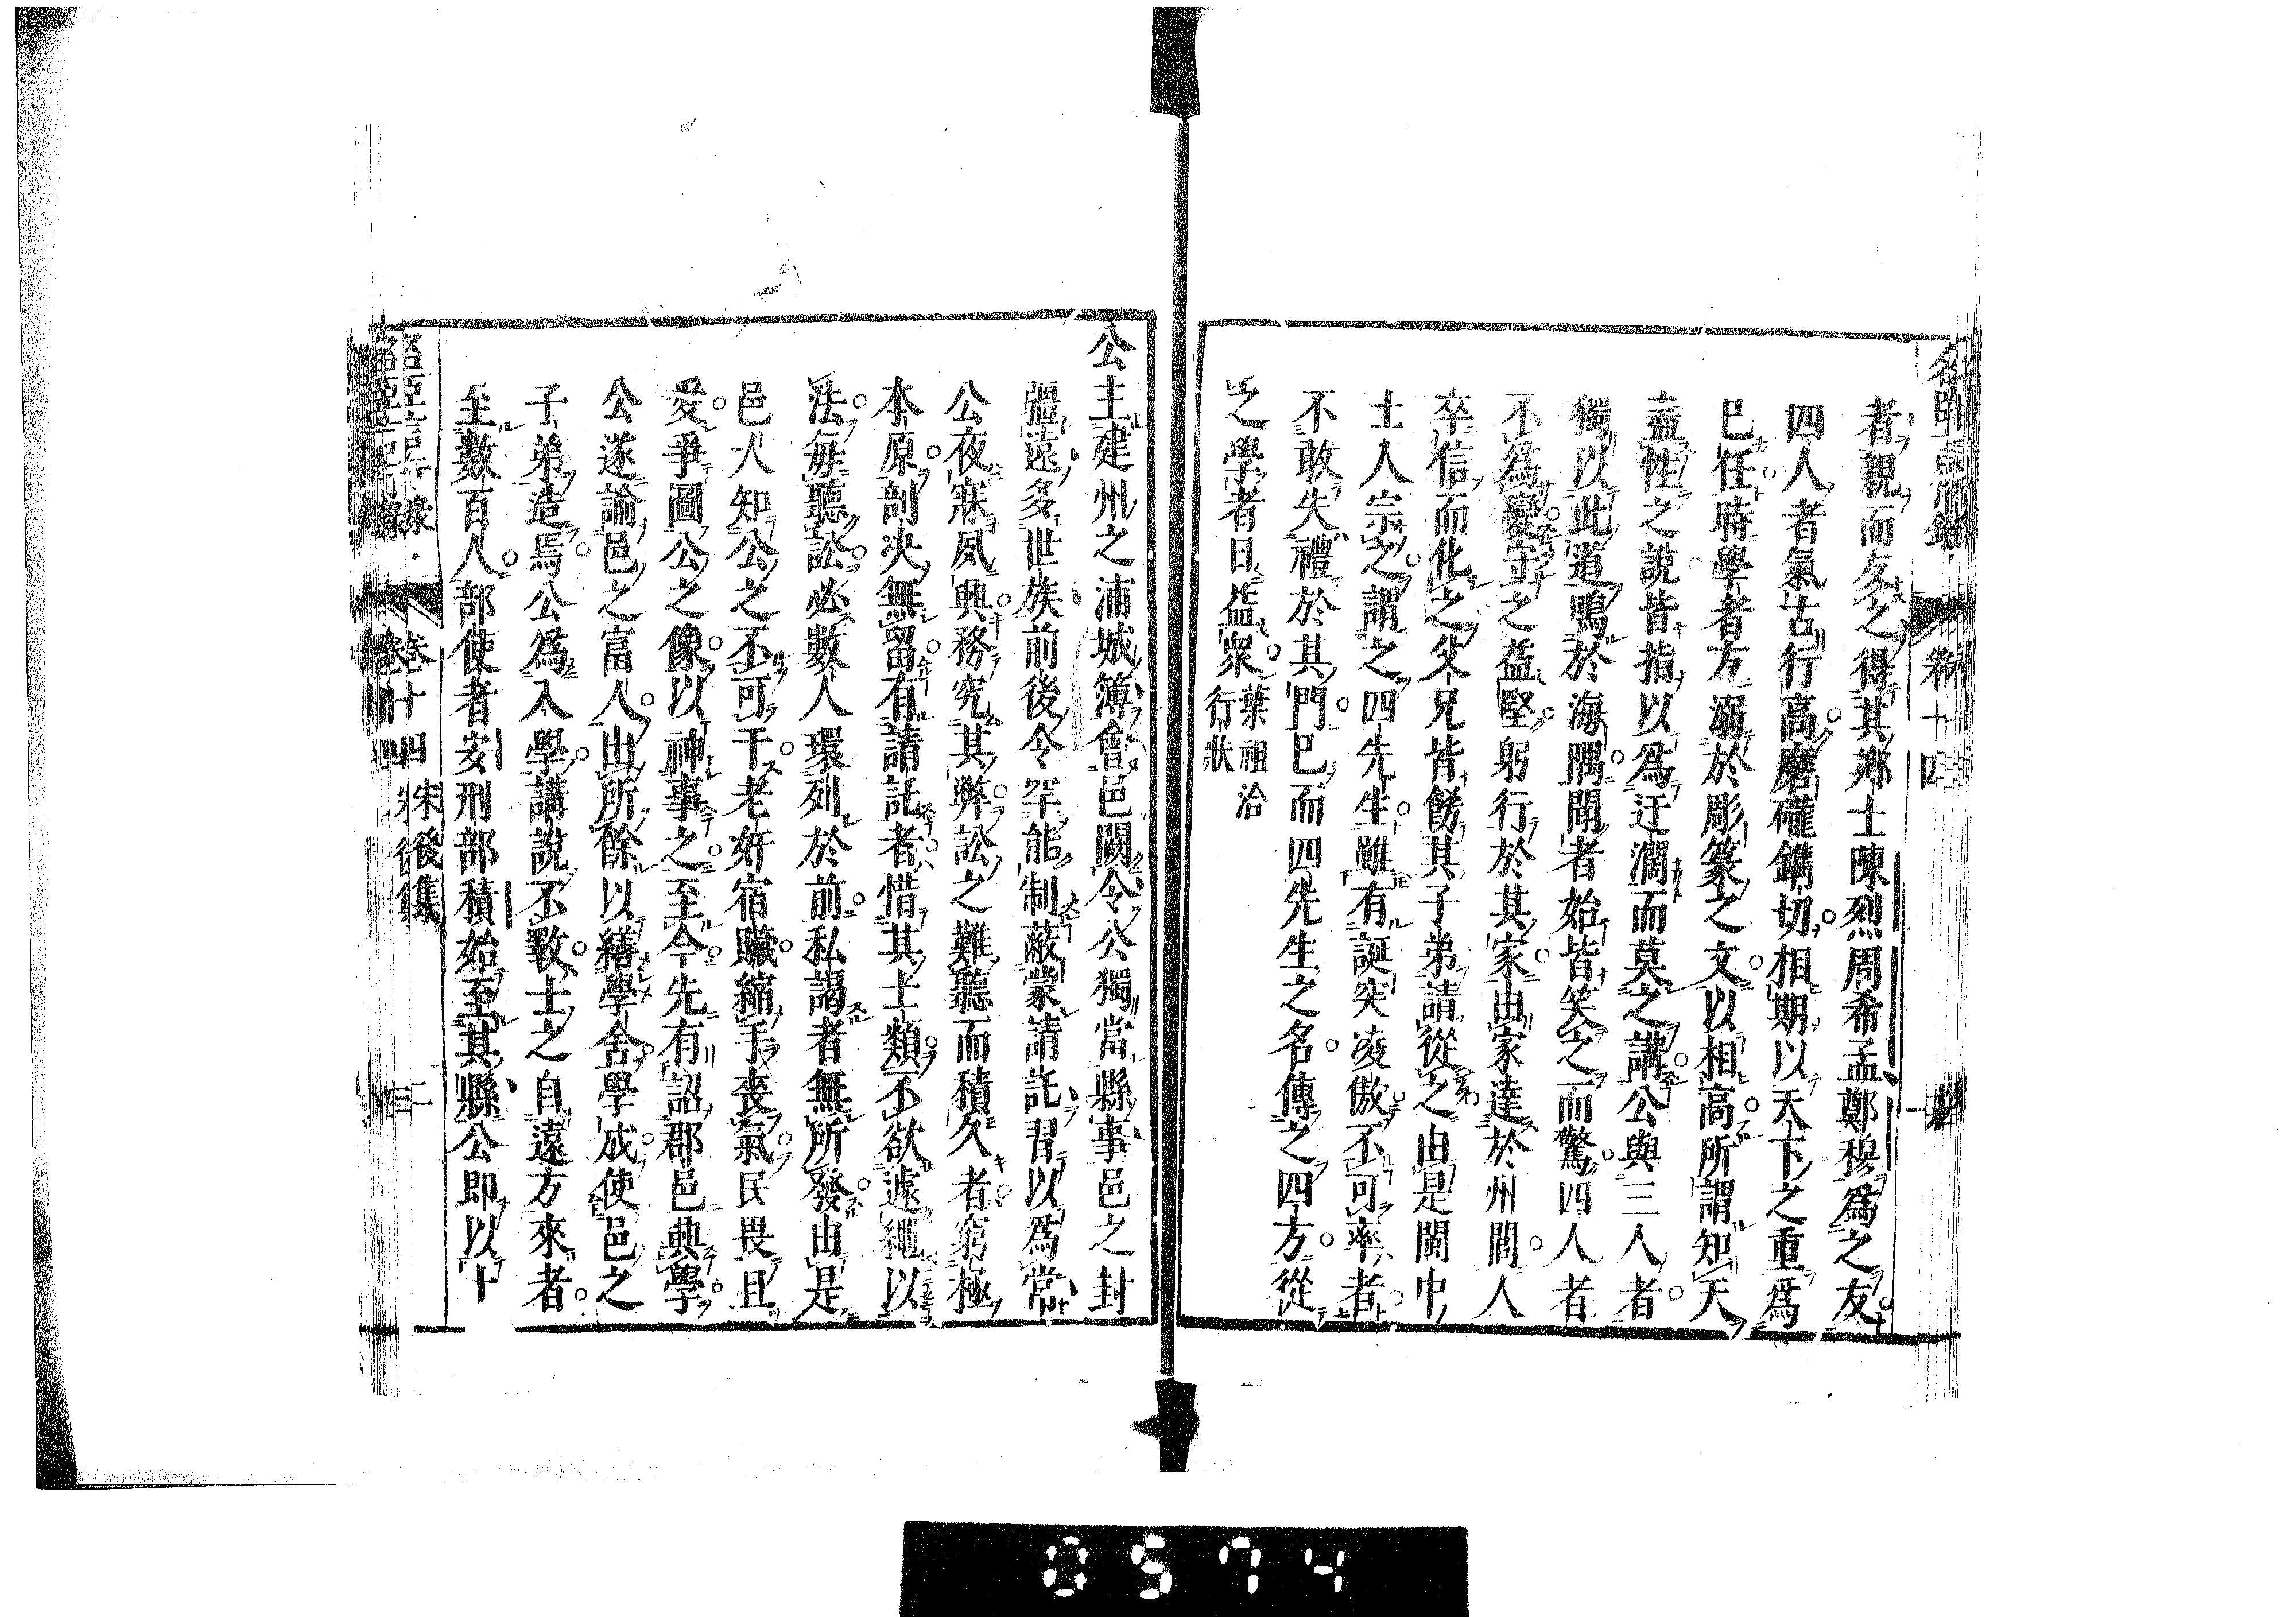 名臣言行錄
卷十四
者親而友之得其鄉士陳烈周希孟鄭穆爲之友
四人者氣古行高磨礲鐫切相期以天下之重爲
已任時學者方溺於彫篆之文以相高所謂知天
盡性之說皆指以爲迂濶而莫之講公與三人者
獨以此道鳴於海隅聞者始皆笑之而驚四人者
不爲變守之益堅躬行於其家由家達於州閭人
卒信而化之父兄皆飭其子弟請從之由是閩中
士人宗之謂之四先生雖有誕突凌傲不可率者
不敢失禮於其門巳而四先生之名傳之四方從
之學者日益衆
葉祖洽
行狀
公主建州之浦城簿會邑闕令公獨當縣事邑之封
疆遠多世族前後令罕能制蔽蒙請託習以爲常
公夜寐夙興務究其弊訟之難聽而積久者窮極
本原剖決無留有請託者惜其士類不欲遽繩以
法毎聽訟必數人環列於前私謁者無所發由是
邑人知公之不可干老奸宿贓縮手喪氣民畏且
愛爭圖公之像以神事之至今先有詔郡邑典學
公遂諭邑之富人出所餘以繕學舍學成使邑之
子弟造焉公爲入學講說不斁士之自遠方來者
至數百人部使者安刑部積始至其縣公即以十
卷十四
宋後集
二
0574